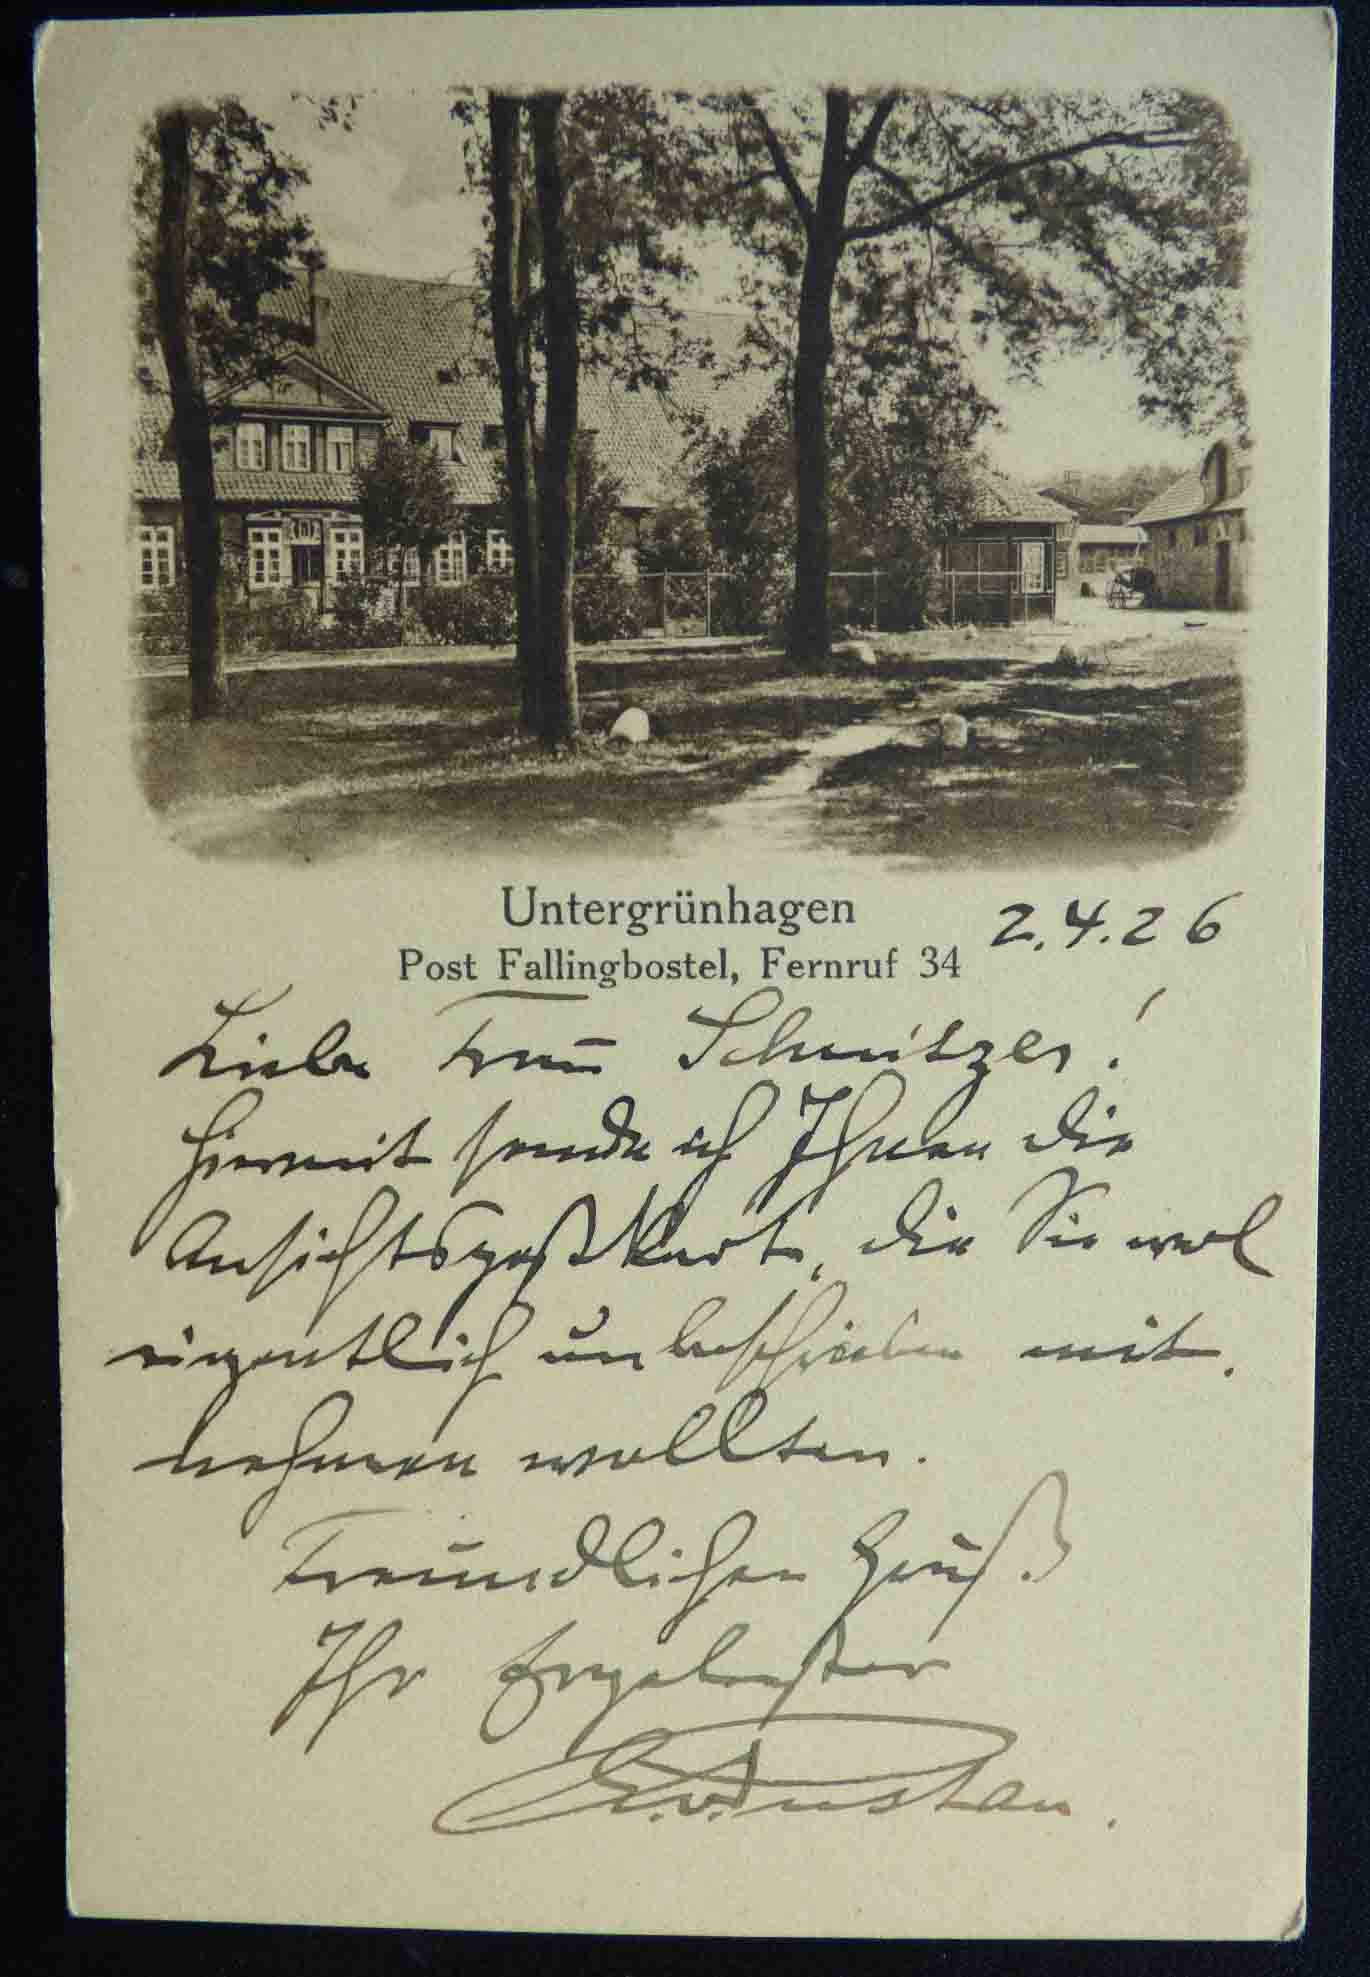 Untergrünhagen
Post Fallingbostel, Fernruf 34
2.4.26
Liebe Frau Schnitzer!
Hiermit sende ich Ihnen die
Ansichtspostkarte, die Sie wol
eigentlich unbeschrieben mit-
nehmen wollten.
Freundlichen Gruß.
Ihr Ergebenster